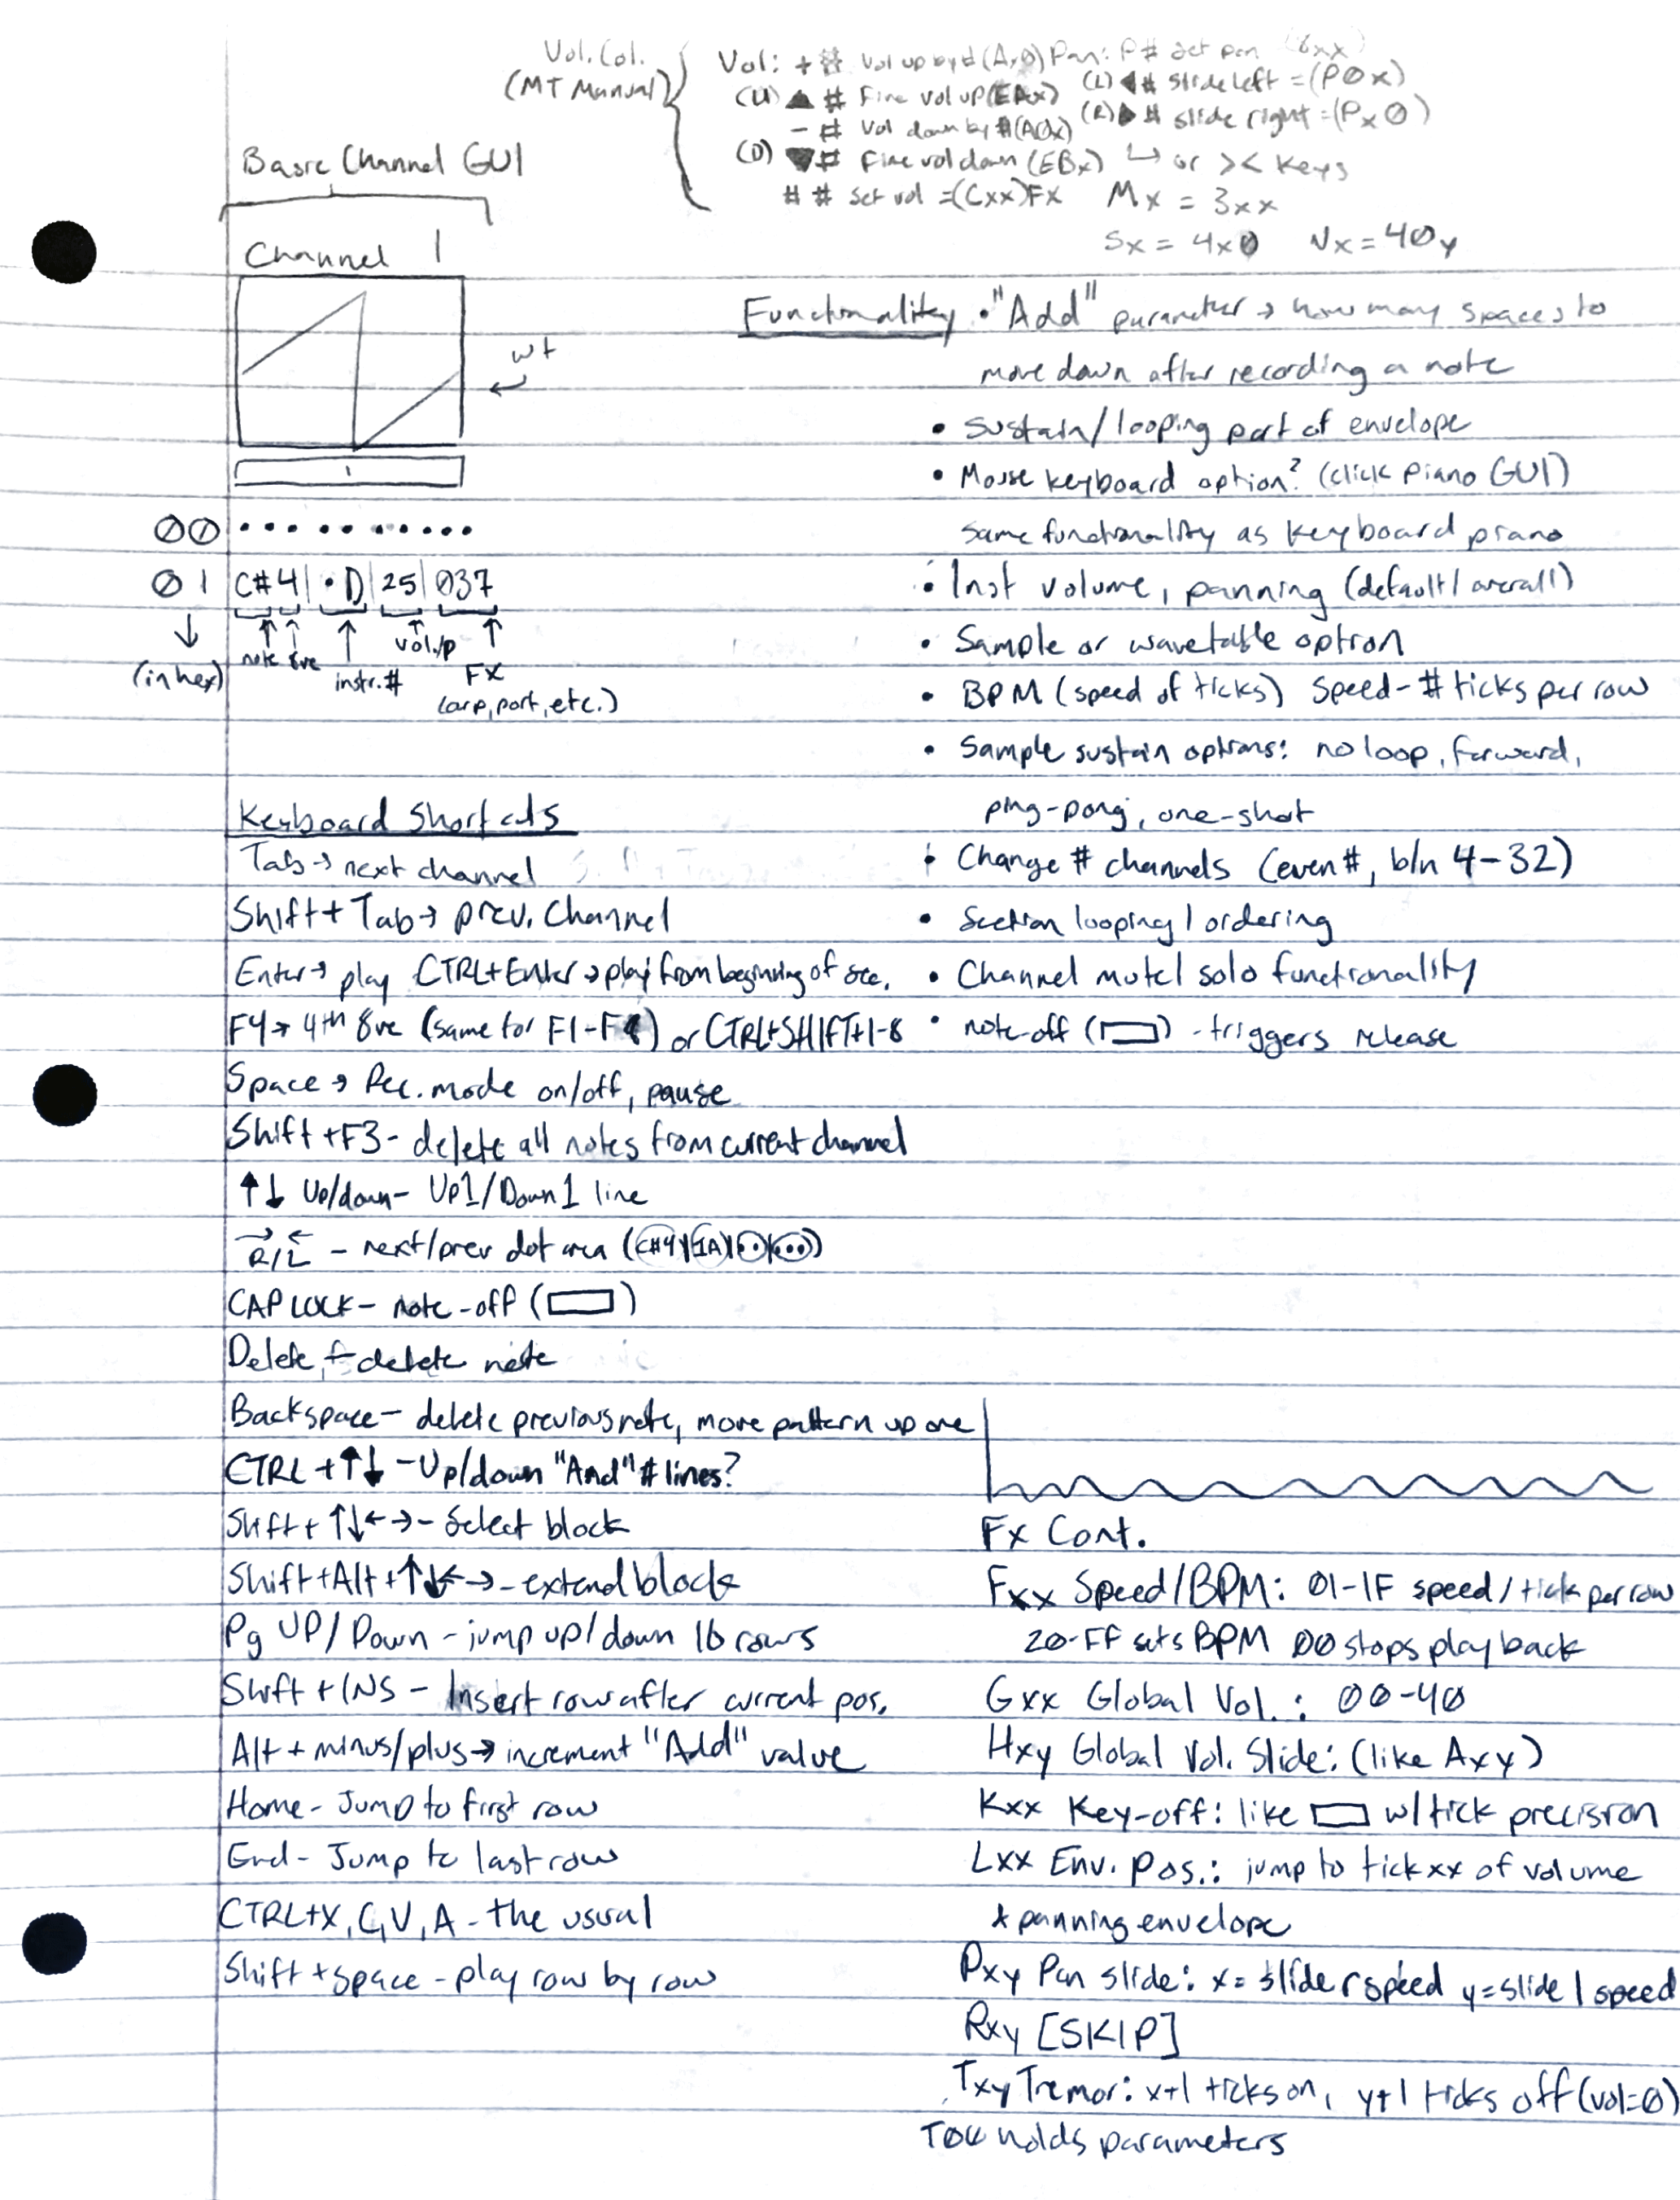 Vol. Col.
(MT Manual)
Vol: + # Vol up by # (Ax0) Pan: P# Set pan (8xx)
(U) ▲ # Fine vol up (EAx) (L) ◀# Slide left = (P0x)
- # Vol down by # (A0x) (R) ▶# slide right = (Px0)
(D) ▼# Fine vol down (EBx) ↳ or >< keys
## Set vol = (Cxx) FX Mx = 3xx
Sx = 4x0 Vx = 40y
Basic Channel GUI
Channel 1
wt
00 • • • • • • • • • •
01 C#4 | •D | 25 | 037
↓ note 8ve vol./p
(in hex) instr.# FX
(arp, port, etc.)
Keyboard Shortcuts
Tab → next channel
Shift + Tab → prev. Channel
Enter → play CTRL+Enter → play from beginning of sec.
F4 → 4th 8ve (same for F1-F8) or CTRL+SHIFT+1-8
Space → Rec. mode on/off, pause
Shift + F3 - delete all notes from current channel
↑↓ Up/down - Up1/Down1 line
→ ←
R/L - next/prev dot area (C#4|1A|••|•••)
CAP LOCK - note-off (▭)
Delete - delete note
Backspace - delete previous note, move pattern up one
CTRL + ↑↓ - Up/down "Add" # lines?
Shift + ↑↓←→ - Select block
Shift+Alt+↑↓←→ - extend block
Pg UP/Down - jump up/down 16 rows
Shift + INS - Insert row after current pos.
Alt + minus/plus → increment "Add" value
Home - Jump to first row
End - Jump to last row
CTRL+X, C, V, A - the usual
Shift + space - play row by row
Functionality • "Add" parameter → how many spaces to
move down after recording a note
• Sustain/looping part of envelope
• Mouse keyboard option? (click piano GUI)
same functionality as keyboard piano
• Inst volume, panning (default/overall)
• Sample or wavetable option
• BPM (speed of ticks) Speed - # ticks per row
• Sample sustain options: no loop, forward,
ping-pong, one-shot
• Change # channels (even #, b/n 4-32)
• Section looping/ordering
• Channel mute/solo functionality
• note-off (▭) - triggers release
Fx Cont.
Fxx Speed/BPM: 01-1F speed/tick per row
20-FF sets BPM 00 stops playback
Gxx Global Vol.: 00-40
Hxy Global Vol. Slide: (like Axy)
Kxx Key-off: like ▭ w/tick precision
Lxx Env. Pos.: jump to tick xx of volume
+ panning envelope
Pxy Pan slide: x = slide r speed y = slide l speed
Rxy [SKIP]
Txy Tremor: x+1 ticks on, y+1 ticks off (vol=0)
T00 holds parameters